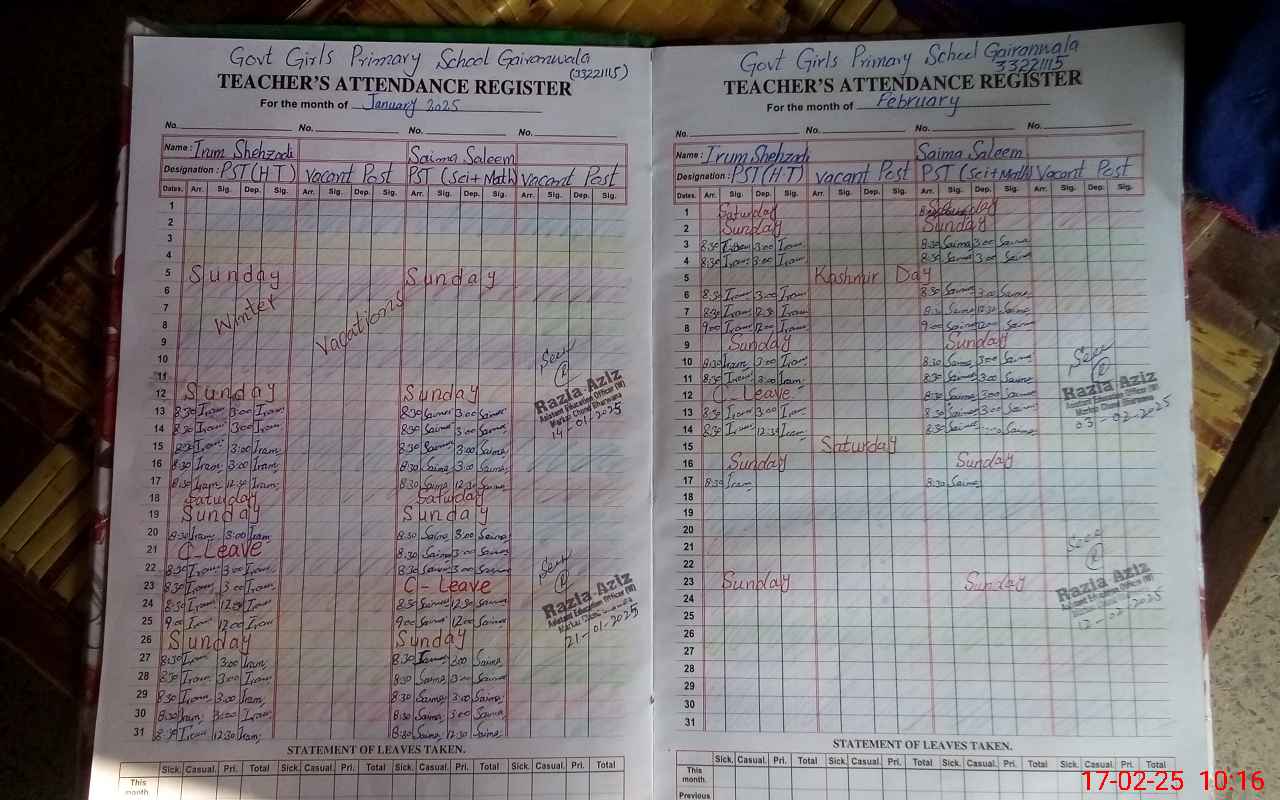 Govt Girls Primary School Gairanwala
(33221115)
TEACHER'S ATTENDANCE REGISTER
For the month of January 2025
No. No. No. No.
Name : Irum Shehzadi Saima Saleem
Designation : PST (H T) Vacant Post PST (Sci+Math) Vacant Post
Dates. Arr. Sig. Dep. Sig. Arr. Sig. Dep. Sig. Arr. Sig. Dep. Sig. Arr. Sig. Dep. Sig.
1
2
3
4
5 Sunday Sunday
6
7 Winter Vacations
8
9
10
11
12 Sunday Sunday
13 8:30 Iram 3:00 Iram 8:30 Saima 3:00 Saima
14 8:30 Iram 3:00 Iram 8:30 Saima 3:00 Saima
15 8:30 Iram 3:00 Iram 8:30 Saima 3:00 Saima
16 8:30 Iram 3:00 Iram 8:30 Saima 3:00 Saima
17 8:30 Iram 12:30 Iram 8:30 Saima 12:30 Saima
18 Saturday Saturday
19 Sunday Sunday
20 8:30 Iram 3:00 Iram 8:30 Saima 3:00 Saima
21 C-Leave 8:30 Saima 3:00 Saima
22 8:30 Iram 3:00 Iram 8:30 Saima 3:00 Saima
23 8:30 Iram 3:00 Iram C-Leave
24 8:30 Iram 12:30 Iram 8:30 Saima 12:30 Saima
25 9:00 Iram 12:00 Iram 9:00 Saima 12:00 Saima
26 Sunday Sunday
27 8:30 Iram 3:00 Iram 8:30 3:00 Saima
28 8:30 Iram 3:00 Iram 8:30 Saima 3:00 Saima
29 8:30 Iram 3:00 Iram 8:30 Saima 3:00 Saima
30 8:30 Iram 3:00 Iram 8:30 Saima 3:00 Saima
31 8:30 Iram 12:30 Iram 8:30 Saima 12:30 Saima
Seen
Razia Aziz
Assistant Education Officer (W)
Markaz Chund Bharwana
14-01-2025
Seen
Razia Aziz
Assistant Education Officer (W)
21-01-2025
STATEMENT OF LEAVES TAKEN.
Sick. Casual. Pri. Total Sick. Casual. Pri. Total Sick. Casual. Pri. Total Sick. Casual. Pri. Total
This
month.
Govt Girls Primary School Gairanwala
33221115
TEACHER'S ATTENDANCE REGISTER
For the month of February
No. No. No. No.
Name : Irum Shehzadi Saima Saleem
Designation : PST (H T) Vacant Post PST (Sci+Math) Vacant Post
Dates. Arr. Sig. Dep. Sig. Arr. Sig. Dep. Sig. Arr. Sig. Dep. Sig. Arr. Sig. Dep. Sig.
1 Saturday Saturday
2 Sunday Sunday
3 8:30 3:00 Iram 8:30 Saima 3:00 Saima
4 8:30 Iram 3:00 Iram 8:30 Saima 3:00 Saima
5 Kashmir Day
6 8:30 Iram 3:00 Iram 8:30 Saima 3:00 Saima
7 8:30 Iram 12:30 Iram 8:30 Saima 12:30 Saima
8 9:00 Iram 12:00 Iram 9:00 Saima 12:00 Saima
9 Sunday Sunday
10 8:30 Iram 3:00 Iram 8:30 Saima 3:00 Saima
11 8:30 Iram 3:00 Iram 8:30 Saima 3:00 Saima
12 C-Leave 8:30 Saima 3:00 Saima
13 8:30 Iram 3:00 Iram 8:30 Saima 3:00 Saima
14 8:30 Iram 12:30 Iram 8:30 Saima Saima
15 Saturday
16 Sunday Sunday
17 8:30 Iram 8:30 Saima
18
19
20
21
22
23 Sunday Sunday
24
25
26
27
28
29
30
31
Seen
Razia Aziz
Assistant Education Officer (W)
Markaz Chund Bharwana
03-02-2025
Seen
Razia Aziz
Assistant Education Officer (W)
Markaz Chund Bharwana
12-02-2025
STATEMENT OF LEAVES TAKEN.
Sick. Casual. Pri. Total Sick. Casual. Pri. Total Sick. Casual. Pri. Total Sick. Casual. Pri. Total
This
month.
Previous
17-02-25 10:16